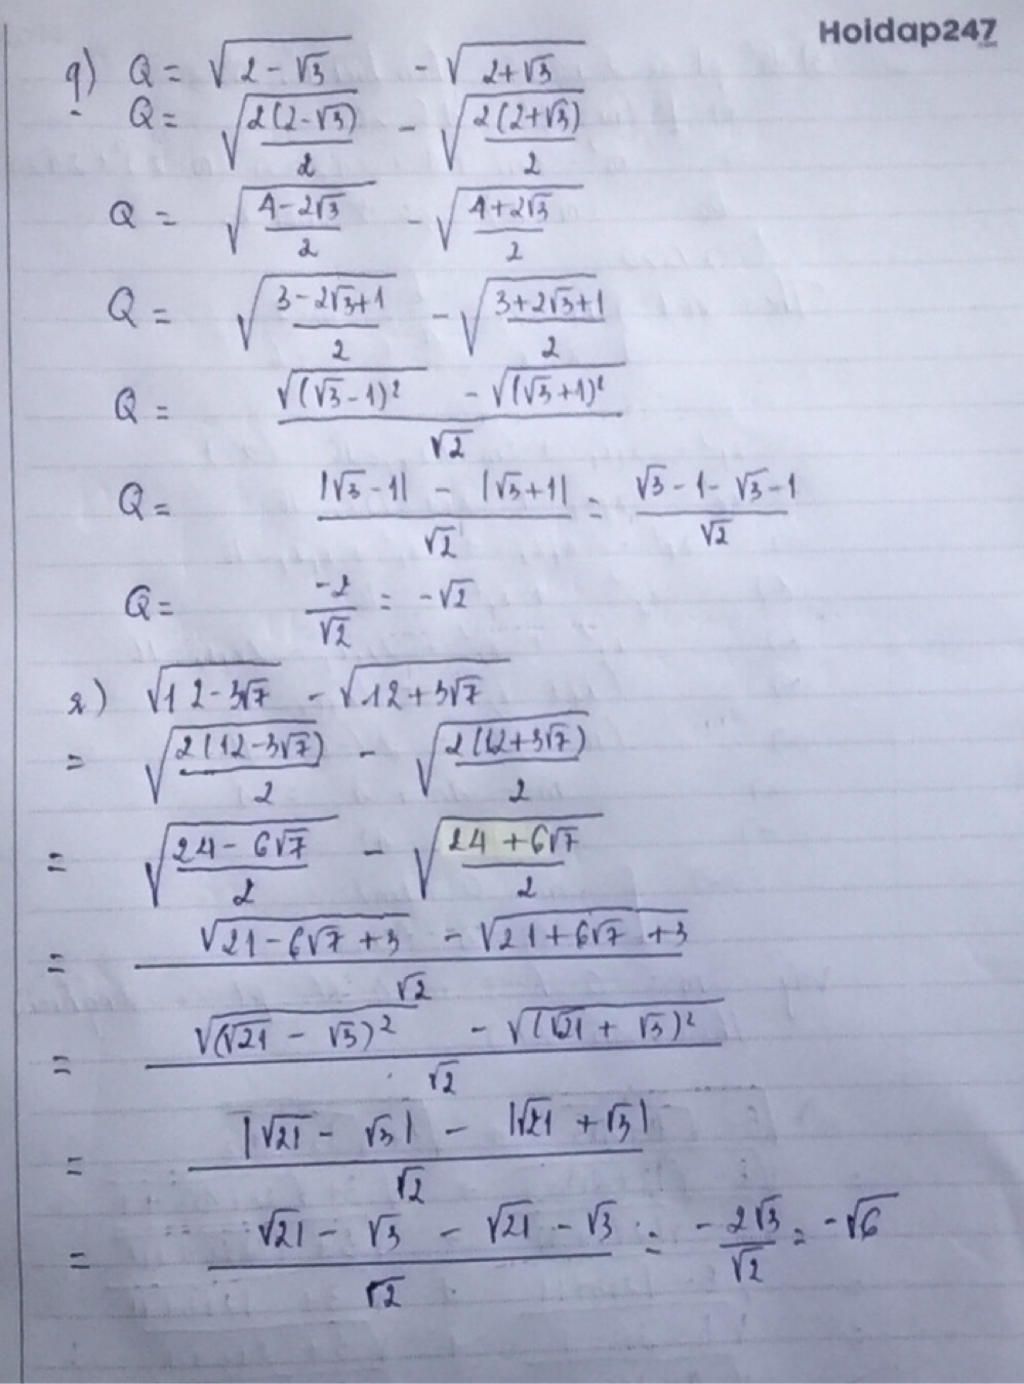 Hoidap247
.com
q) Q = √(2-√3) - √(2+√3)
Q = √(2(2-√3)/2) - √(2(2+√3)/2)
Q = √((4-2√3)/2) - √((4+2√3)/2)
Q = √((3-2√3+1)/2) - √((3+2√3+1)/2)
Q = (√((√3-1)²) - √((√3+1)²))/√2
Q = (|√3-1| - |√3+1|)/√2 = (√3-1-√3-1)/√2
Q = -2/√2 = -√2
r) √(12-3√7) - √(12+3√7)
= √(2(12-3√7)/2) - √(2(12+3√7)/2)
= √((24-6√7)/2) - √((24+6√7)/2)
= (√(21-6√7+3) - √(21+6√7+3))/√2
= (√((√21-√3)²) - √((√21+√3)²))/√2
= (|√21-√3| - |√21+√3|)/√2
= (√21-√3-√21-√3)/√2 = -2√3/√2 = -√6